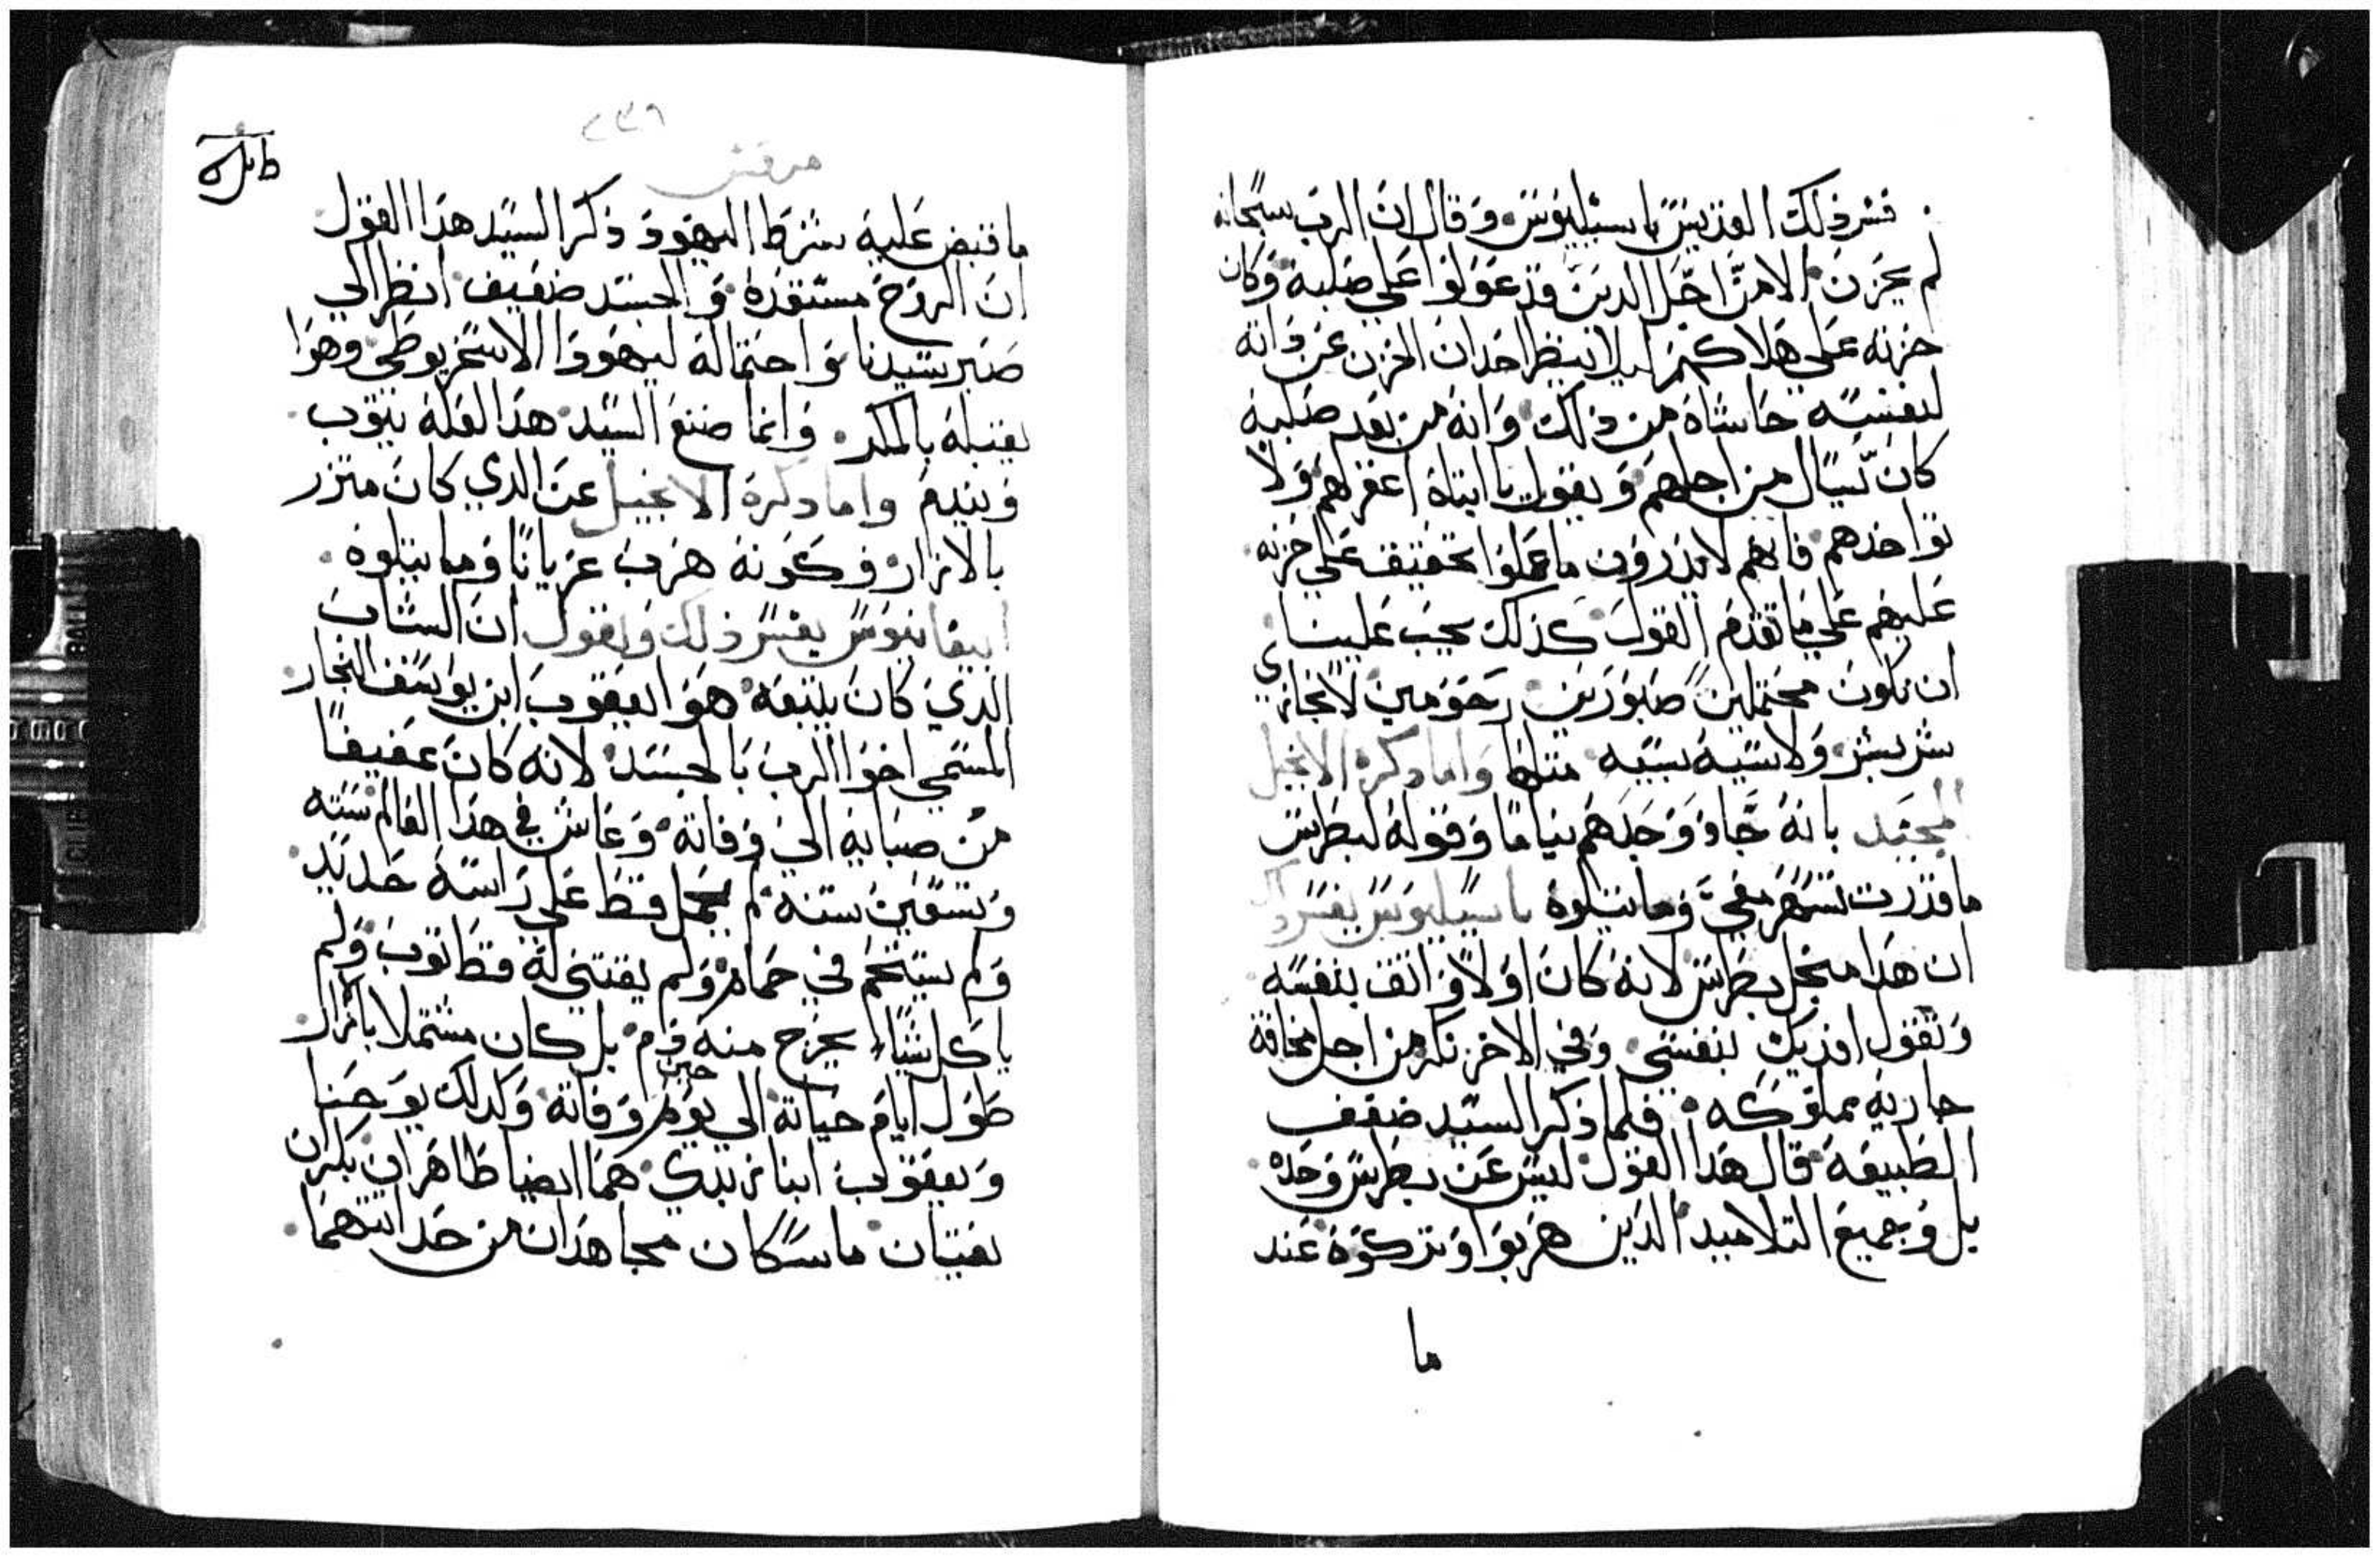 فسر ذلك القديس باسيليوس وقال ان الرب سبحانه
لم يحزن الا من اجل الدين قد عولوا على صلبه وكان
حزنه على هلاكهم ليلا ينظر احد ان الحزن عن ذاته
لنفسه حاشاه من ذلك وانه من بعد صلبه
كان يسال من اجلهم ويقول يا ابتاه اغفر لهم ولا
تواخدهم فانهم لا يدرون ما عملوا تحقيقه على حزنه
عليهم على ما تقدم القول كذلك يجب علينا
ان نكون محتملين صبورين رحومين لا نجازي
شر بشر ولا سيه بسيه مثلها واما دكره الانجيل
المجيد بانه جا ووجدهم نياما وقوله لبطرس
ما قدرت تسهر معي وما يتلوه باسيليوس يفسر ذلك
ان هدا مخجل بطرس لانه كان اولا واثق بنفسه
وتقول افديك بنفسي وفي الاخر نكر من اجل مخافة
جاريه مملوكه فلما ذكر السيد ضعف
الطبيعه قال هدا القول ليس عن بطرس وحده
بل وجميع التلاميد الدين هربوا وتركوه عند
ما
٢٣٦
مرقس
ما قبض عليه شرط اليهود ذكر السيد هدا القول
ان الروح مستعده والجسد ضعيف انظر الي
صبر سيدنا واحتماله ليهودا الاسخريوطي وهوا
يقبله بالمكر وانما صنع السيد هدا لعله يتوب
ويندم واما دكره الانجيل عن الدي كان متزر
بالازار وكونه هرب عريانا وما يتلوه
ابيفانيوس يفسر ذلك ويقول ان الشاب
الدي كان يتبعه هو يعقوب ابن يواسف النجار
المسمي اخوا الرب بالجسد لانه كان عفيفا
من صبايه الي وفاته وعاش في هدا العالم سته
وتسعين سنه لم يجعل قط على راسه حديد
ولم يستحم في حمام ولم يقتني له قط توب ولم
ياكل شيا يخرج منه دم بل كان مشتملا بازار
طول ايام حياته الي يوم حين وفاته وكدلك يوحنا
ويعقوب ابنا زبدي هما ايضا طاهران بكران
نقيتان ماسكان مجاهدان من حداثتهما